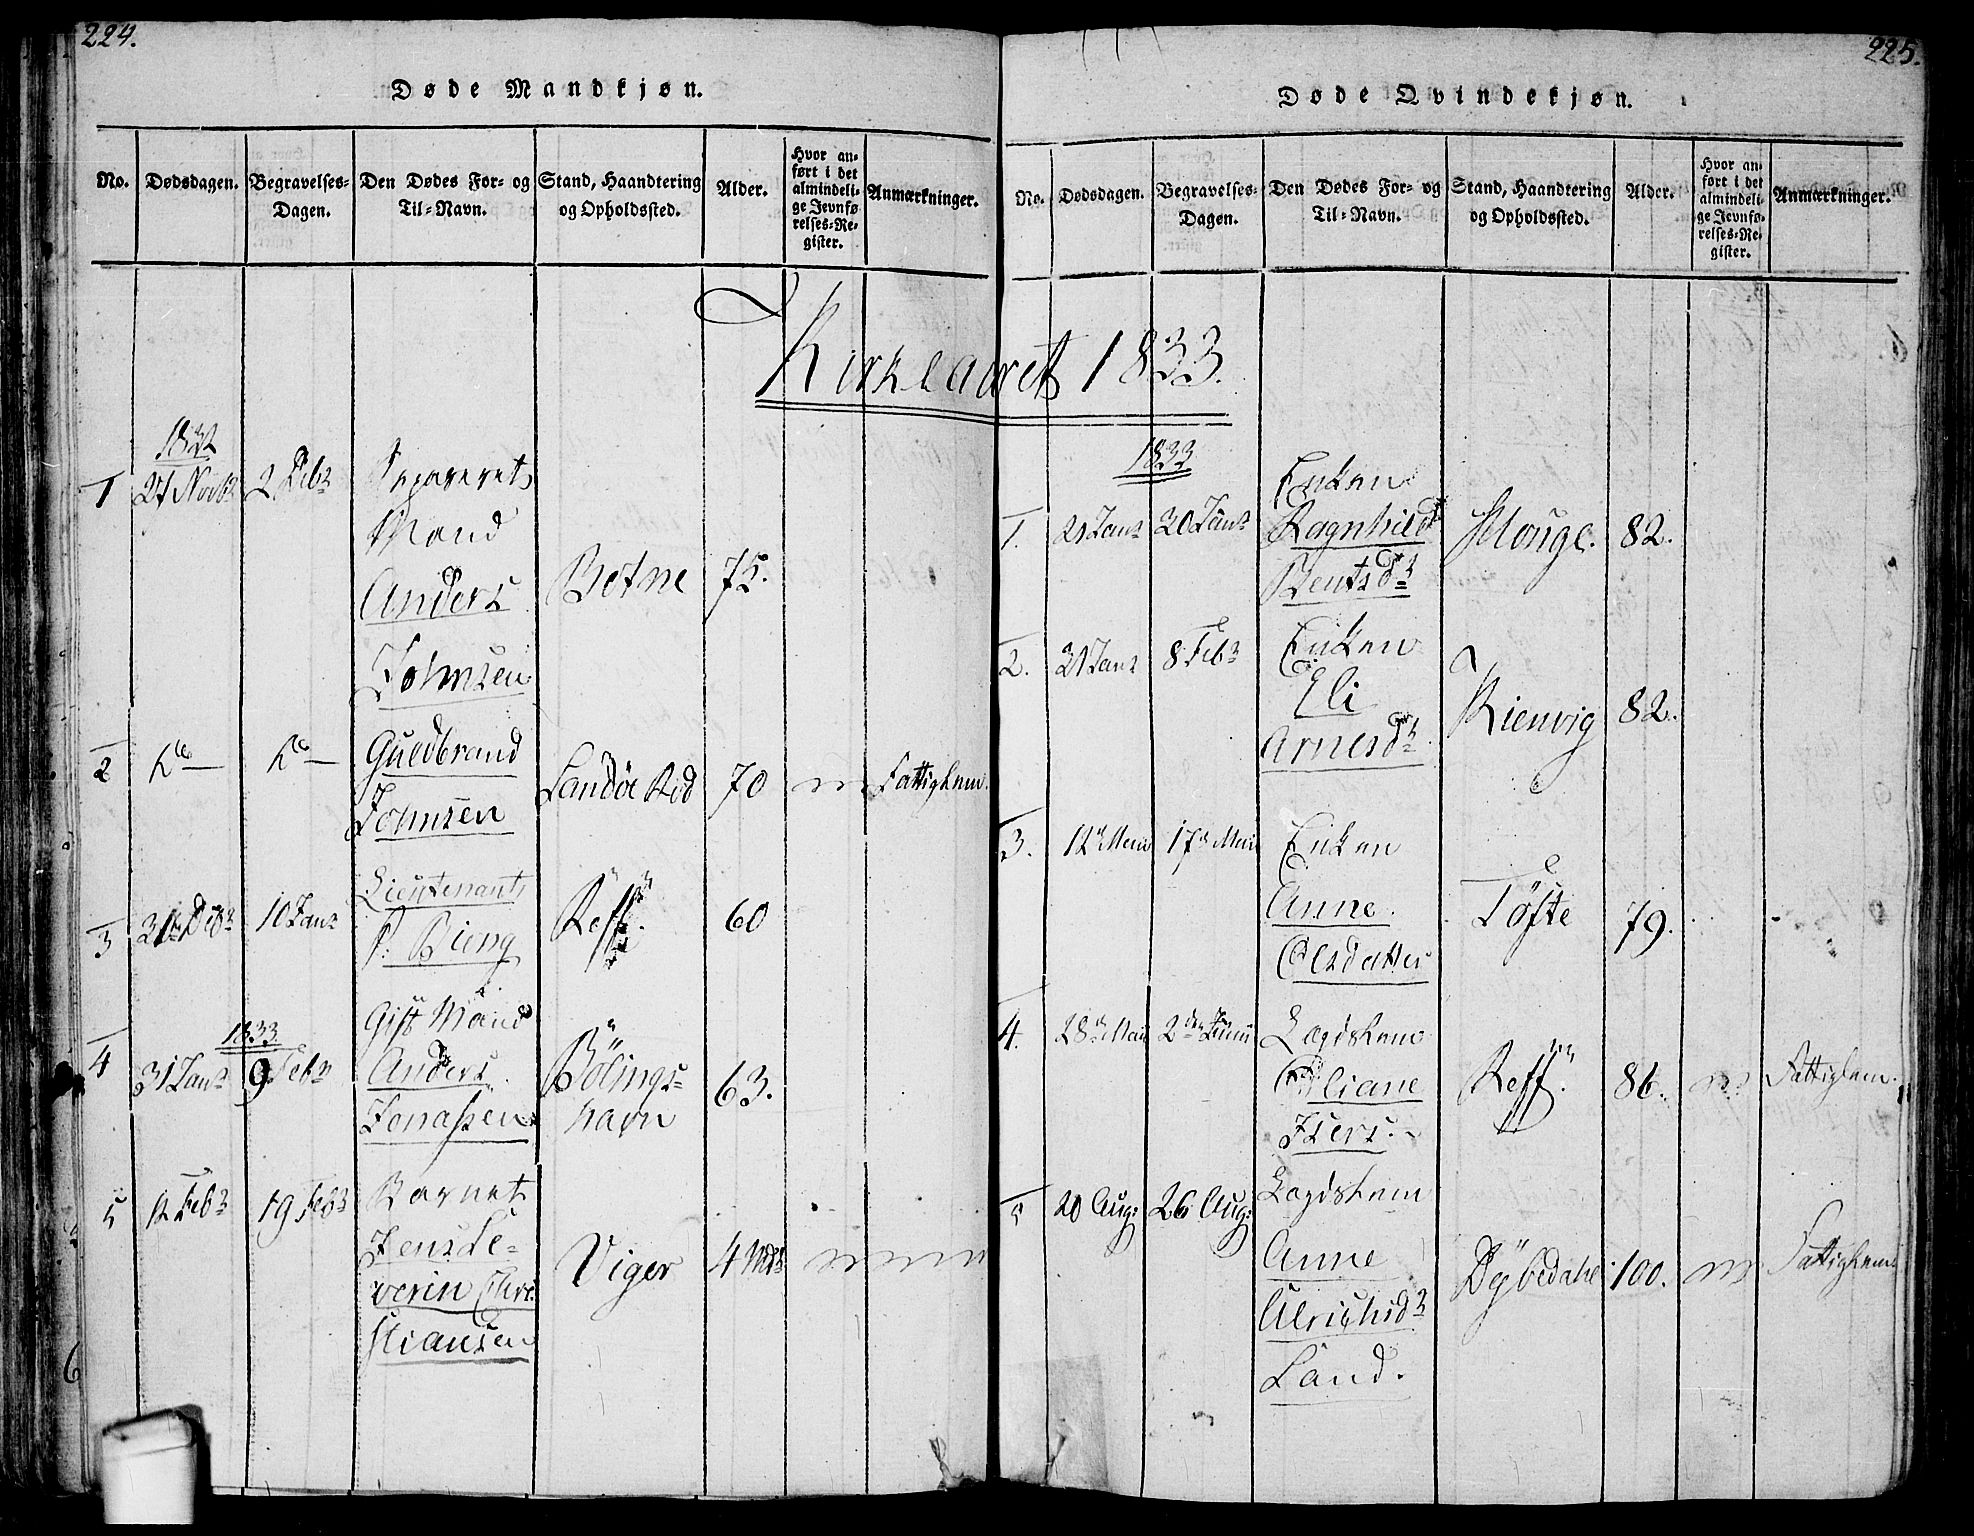 224.
Døde Mandkjøn.
No. Dødsdagen. Begravelses-Dagen. Den Dødes For- og Til-Navn. Stand, Haandtering og Opholdssted. Alder. Hvor anført i det almindelige Jevnførelses-Register. Anmærkninger.
Kirkeaaret 1833.
1832
1 27 Novbr 2 Debr Separeret
Mand
Anders Botne 75.
Johnsen
2 do do Guldbrand
Johnsen Sandöe Rid 70 Fattiglem.
3 Debr 10 Janr Lieutenant
P. Bieng Reff. 60
1833
4 31 Janr 9 Febr Gift Mand
Anders Bölings-
Jonassen havn 63.
5 12 Febr 19 Febr Barnet
Jens Se-
verin Chri- Viger 4 Mdr
stiansen
225.
Døde Qvindekjøn.
No. Dødsdagen. Begravelses-Dagen. Den Dødes For- og Til-Navn. Stand, Haandtering og Opholdssted. Alder. Hvor anført i det almindelige Jevnførelses-Register. Anmærkninger.
1833
1. 21 Janr 20 Janr Enken
Ragnhild Houge. 82.
Bentsdr
2. 31 Janr 8 Febr Enken
Eli
Arnesdr Kienvig 82.
3. 12 Mai 17 Mai Enken
Anne Töfte 79.
Olsdatter
4. 28 Mai 2den Juni Lægdslem
Reff. 86. Fattiglem.
Isers.
5 20 Aug: 26 Aug: Lægdslem
Anne Dybedahl 100. Fattiglem
Ulrichsdr
Land.
6